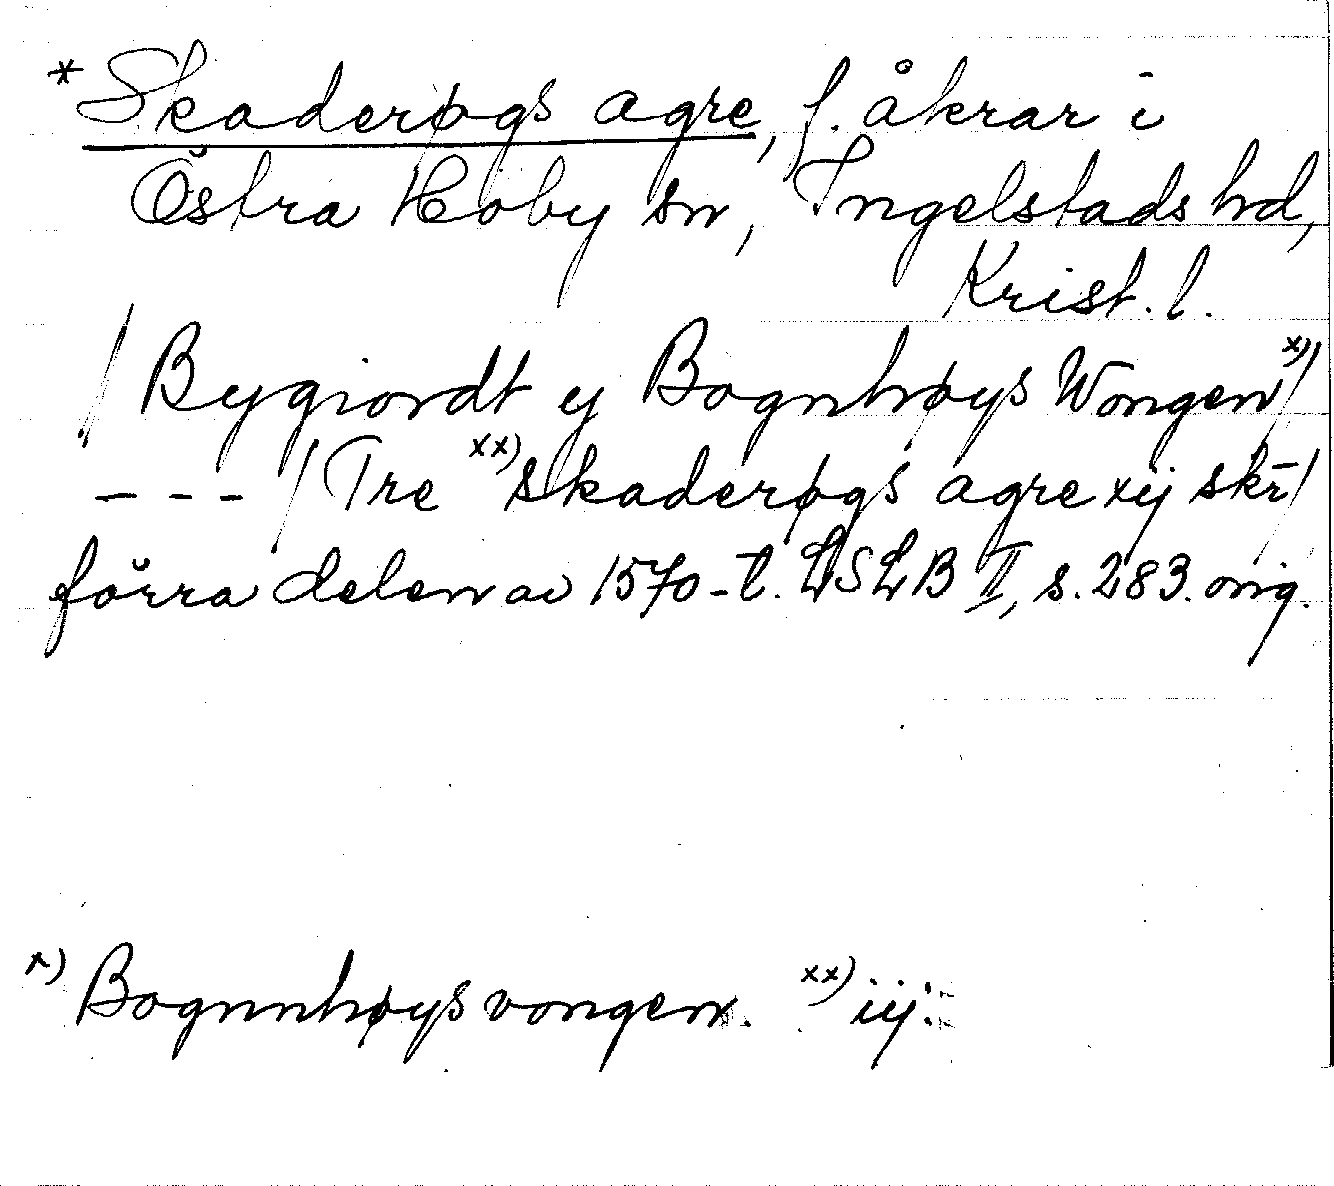 *Skaderøgs agre, f. åkrar i
Östra Hoby sn, Ingelstads hd,
Krist. l.
/ Bygiordt y Bognhøys Wongen x)/
--- / Tre xx) skaderøgs agre xij skr̄/
förra delen av 1570-t. LSLB II, s. 283. orig.
x) Bognnhøys vongen. xx) iij.